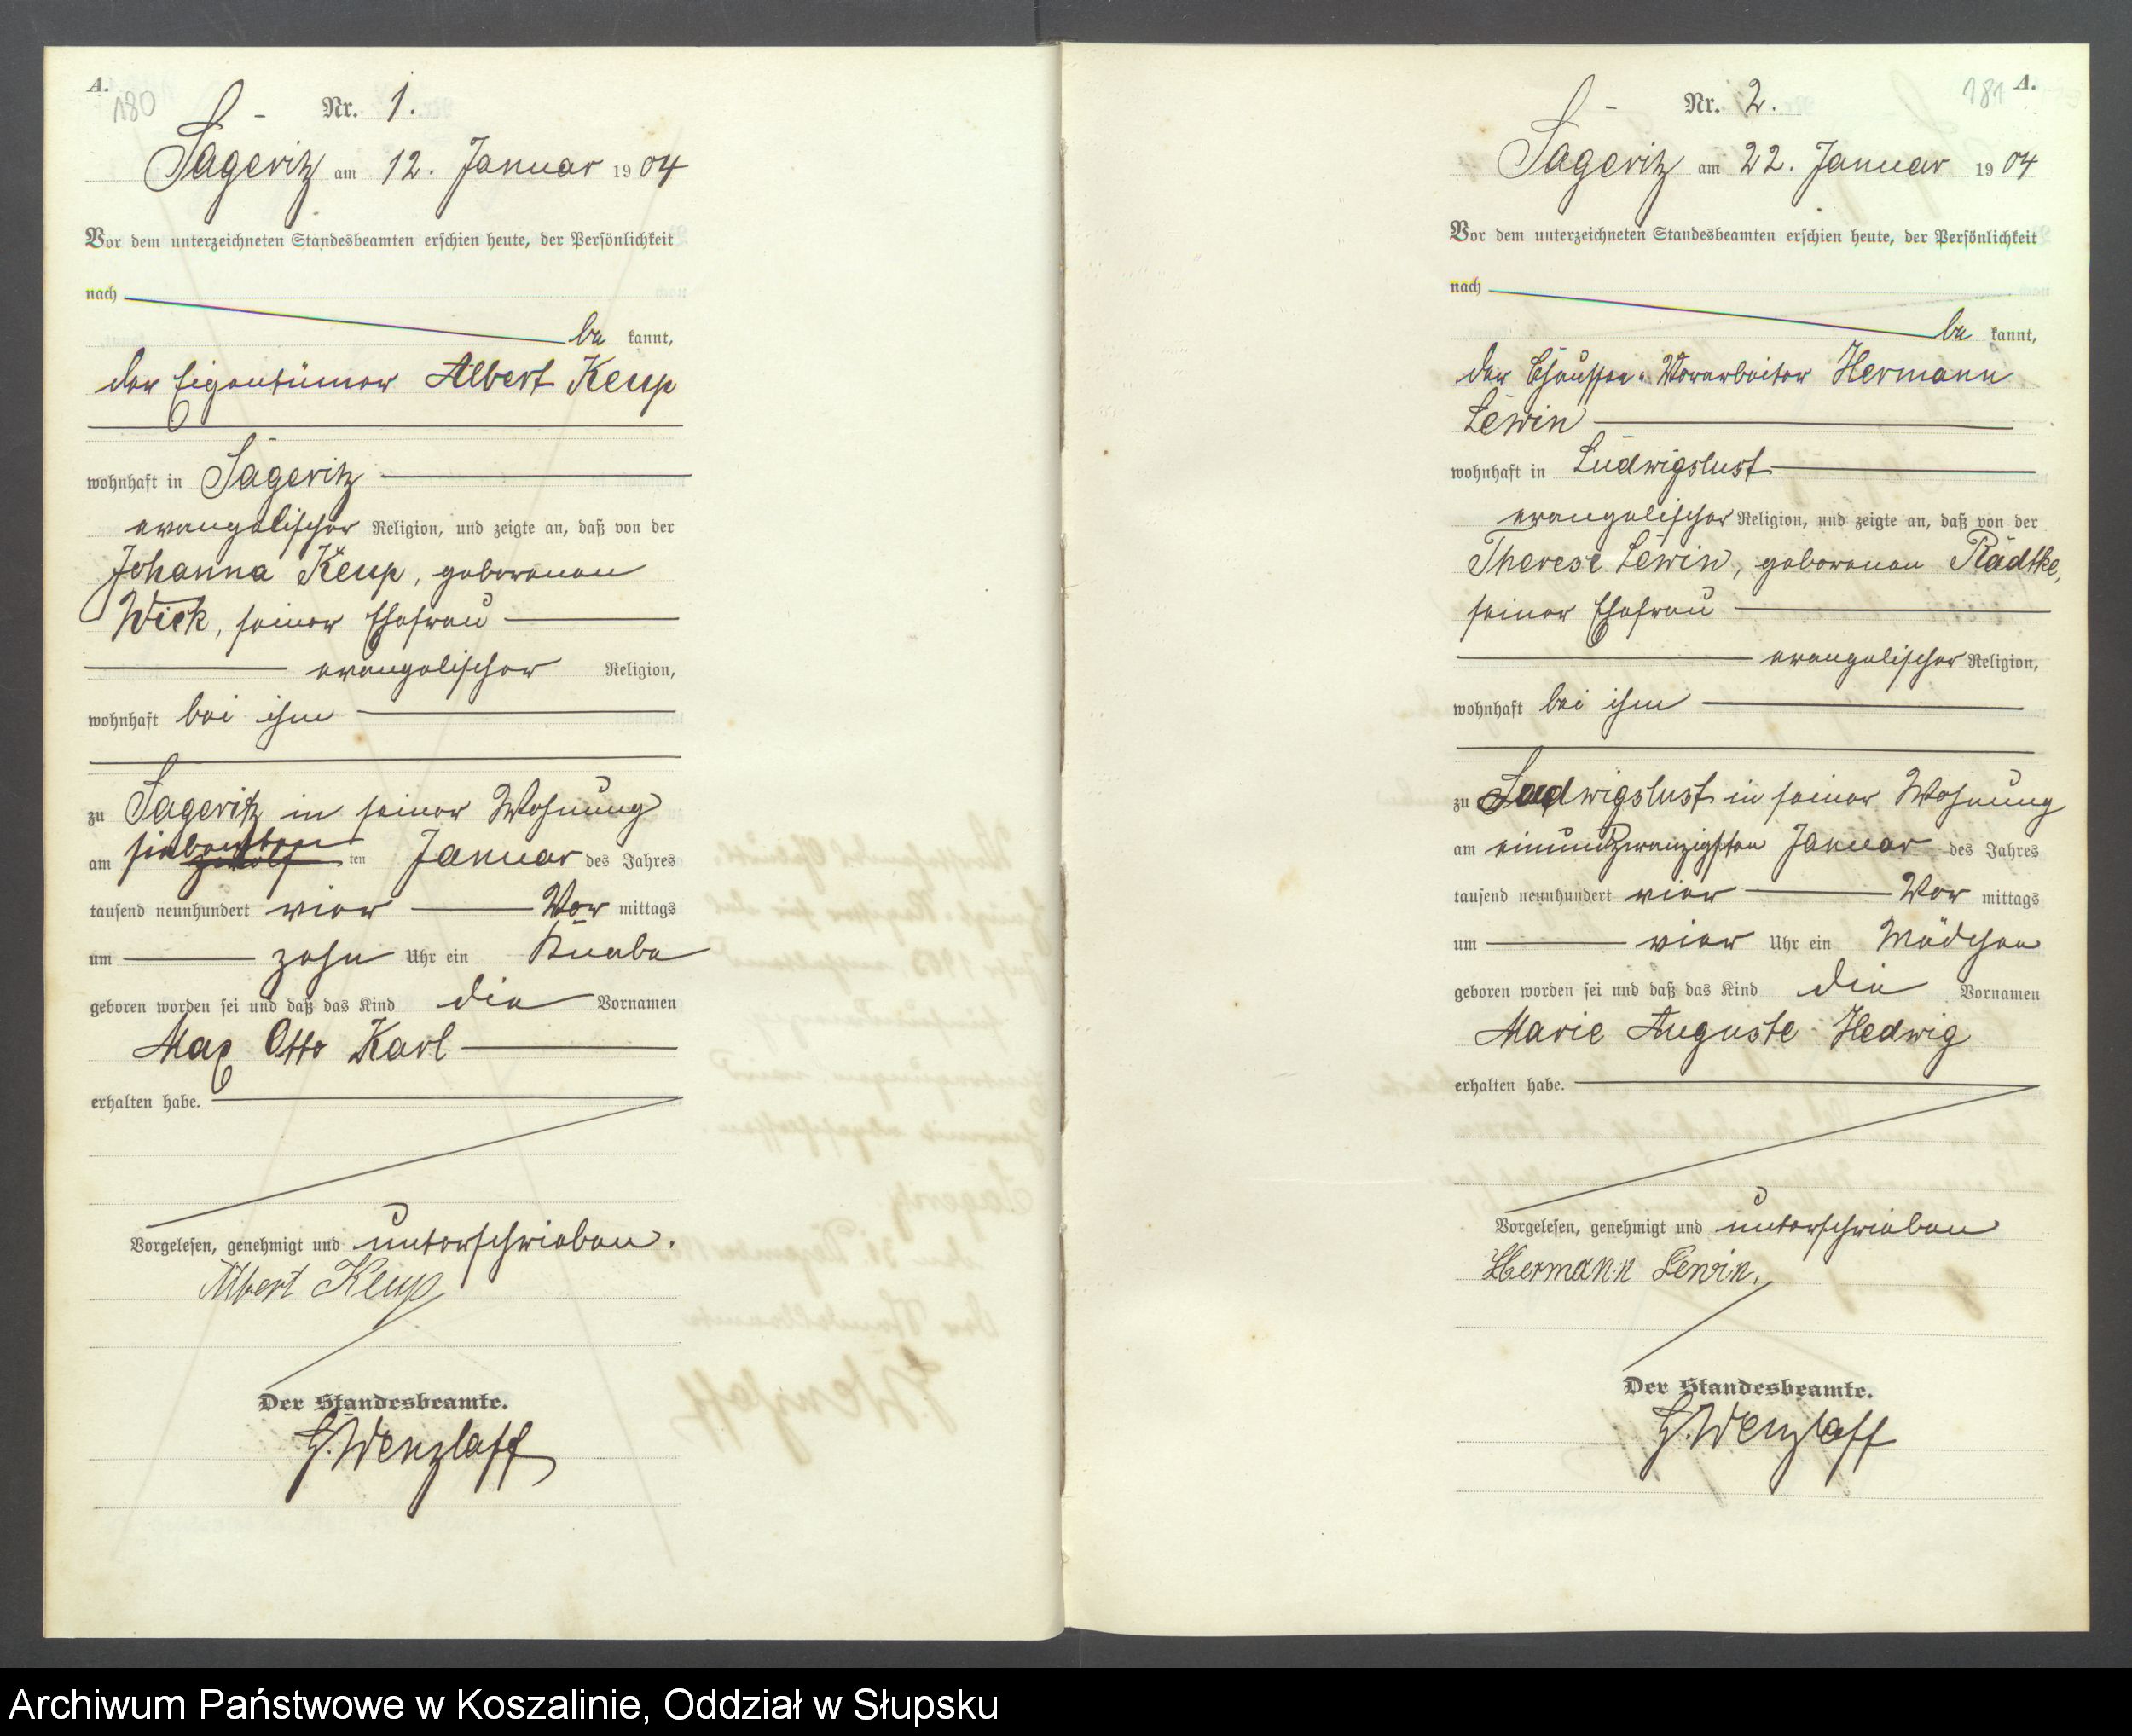 A.
180
Nr. 1.
Sageritz am 12. Januar 1904
Vor dem unterzeichneten Standesbeamten erschien heute, der Persönlichkeit
nach
be kannt,
der Eigentümer Albert Keup
wohnhaft in Sageritz
evangelischer Religion, und zeigte an, daß von der
Johanna Keup, geborenen
Wick, seiner Ehefrau
evangelischer Religion,
wohnhaft bei ihm
zu Sageritz in seiner Wohnung
am siebenten zwölf ten Januar des Jahres
tausend neunhundert vier Vor mittags
um zehn Uhr ein Knabe
geboren worden sei und daß das Kind die Vornamen
Max Otto Karl
erhalten habe.
Vorgelesen, genehmigt und unterschrieben.
Albert Keup
Der Standesbeamte.
G. Wenzlaff
181
A.
Nr. 2.
Sageritz am 22. Januar 1904
Vor dem unterzeichneten Standesbeamten erschien heute, der Persönlichkeit
nach
be kannt,
der Chaussee-Vorarbeiter Hermann
Lewin
wohnhaft in Ludwigslust
evangelischer Religion, und zeigte an, daß von der
Therese Lewin, geborenen Radtke,
seiner Ehefrau
evangelischer Religion,
wohnhaft bei ihm
zu Ludwigslust in seiner Wohnung
am einundzwanzigsten Januar des Jahres
tausend neunhundert vier Vor mittags
um vier Uhr ein Mädchen
geboren worden sei und daß das Kind die Vornamen
Marie Auguste Hedwig
erhalten habe.
Vorgelesen, genehmigt und unterschrieben
Hermann Lewin.
Der Standesbeamte.
G. Wenzlaff
Archiwum Państwowe w Koszalinie, Oddział w Słupsku